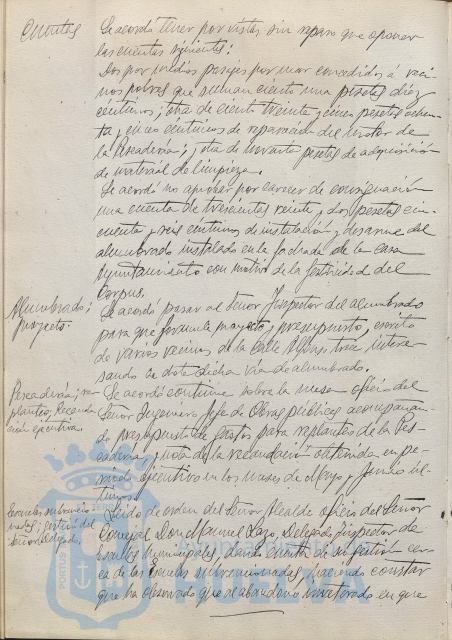 Cuentas
Se acordó tener por vistas sin reparo que oponer
las cuentas siguientes:
Dos por medios pasajes por mar concedidos á veci-
nos pobres que suman ciento una pesetas diez
céntimos; otra de ciento treinta y cinco pesetas ochen-
ta y cinco céntimos de reparación del motor de
la Pescadería; y otra de noventa pesetas de adquisición
de material de limpieza.
Se acordó no aprobar por carecer de consignación
una cuenta de trescientas veinte y dos pesetas cin-
cuenta y seis céntimos de instalación y desarme del
alumbrado instalado en la fachada de la Casa
Ayuntamiento con motivo de la festividad del
Corpus.
Alumbrado;
proyecto.
Se acordó pasar al Señor Inspector del alumbrado
para que formule proyecto y presupuesto, escrito
de varios vecinos de la calle Alfonso trece intere-
sando se dote dicha vía de alumbrado.
Pescadería; re-
planteo; Recauda-
ción ejecutiva.
Se acordó continúe sobre la mesa oficio del
Señor Ingeniero Jefe de Obras públicas acompañan-
do presupuesto de gastos para replanteo de la Pes-
cadería y nota de la recaudación obtenida en pe-
riodo ejecutivo en los meses de Mayo y Junio úl-
timos.
Escuelas subvencio-
nadas; gestión del
Señor Delegado.
Leído de orden del Señor Alcalde oficio del Señor
Concejal Don Manuel Lazo, Delegado Inspector de
Escuelas Municipales, dando cuenta de su gestión cer-
ca de las Escuelas subvencionadas, haciendo constar
que ha observado que el abandono inveterado en que
PORTUS
HUELVA